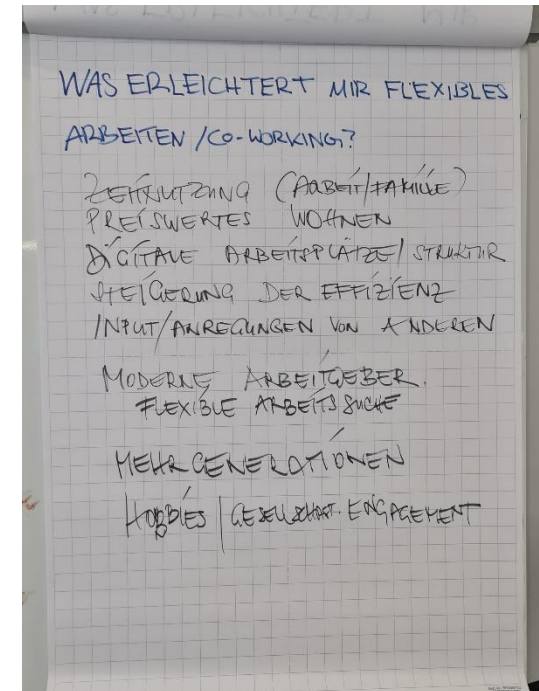 WAS ERLEICHTERT MIR FLEXIBLES
ARBEITEN / CO-WORKING?
ZEITNUTZUNG (ARBEIT/FAMILIE)
PREISWERTES WOHNEN
DIGITALE ARBEITSPLÄTZE/ STRUKTUR
STEIGERUNG DER EFFIZIENZ
INPUT/ANREGUNGEN VON ANDEREN
MODERNE ARBEITGEBER.
FLEXIBLE ARBEITSSUCHE
MEHRGENERATIONEN
HOBBIES | GESELLSCHAFT. ENGAGEMENT